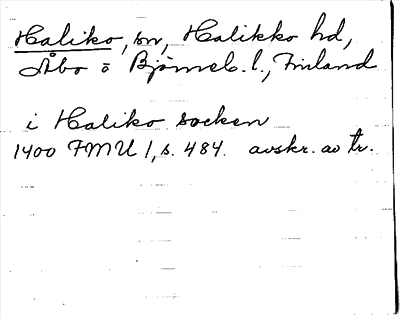 Haliko, sn, Halikko hd,
Åbo o Björneb. l., Finland
i Haliko socken
1400 FMU 1, s. 484. avskr. av tr.